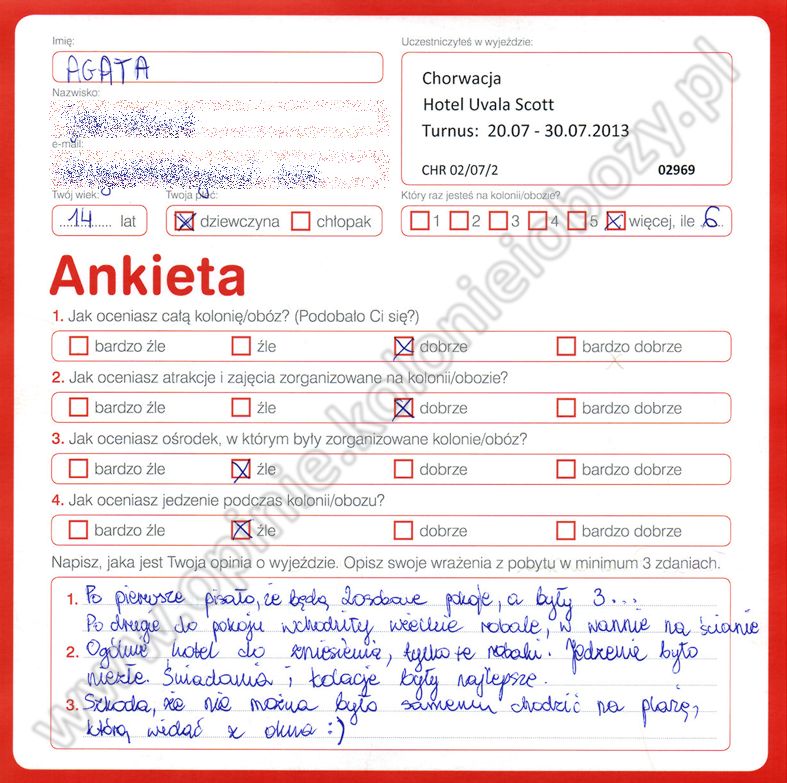 Imię:
AGATA
Uczestniczyłeś w wyjeździe:
Chorwacja
Hotel Uvala Scott
Turnus: 20.07 - 30.07.2013
CHR 02/07/2 02969
Nazwisko:
e-mail:
Twój wiek:
14 lat
Twoja płeć:
dziewczyna chłopak
Który raz jesteś na kolonii/obozie?
1 2 3 4 5 więcej, ile 6
Ankieta
1. Jak oceniasz całą kolonię/obóz? (Podobało Ci się?)
bardzo źle źle dobrze bardzo dobrze
2. Jak oceniasz atrakcje i zajęcia zorganizowane na kolonii/obozie?
bardzo źle źle dobrze bardzo dobrze
3. Jak oceniasz ośrodek, w którym były zorganizowane kolonie/obóz?
bardzo źle źle dobrze bardzo dobrze
4. Jak oceniasz jedzenie podczas kolonii/obozu?
bardzo źle źle dobrze bardzo dobrze
Napisz, jaka jest Twoja opinia o wyjeździe. Opisz swoje wrażenia z pobytu w minimum 3 zdaniach.
1. Po pierwsze pisało, że będą 2osobowe pokoje, a były 3...
Po drugie do pokoju wchodziły wielkie robale, w wannie na ścianie
2. Ogólnie hotel do zniesienia, tylko te robaki. Jedzenie było
niezłe. Śniadania i kolacje były najlepsze.
3. Szkoda, że nie można było samemu chodzić na plażę,
którą widać z okna :)
www.opinie.kolonieiobozy.pl